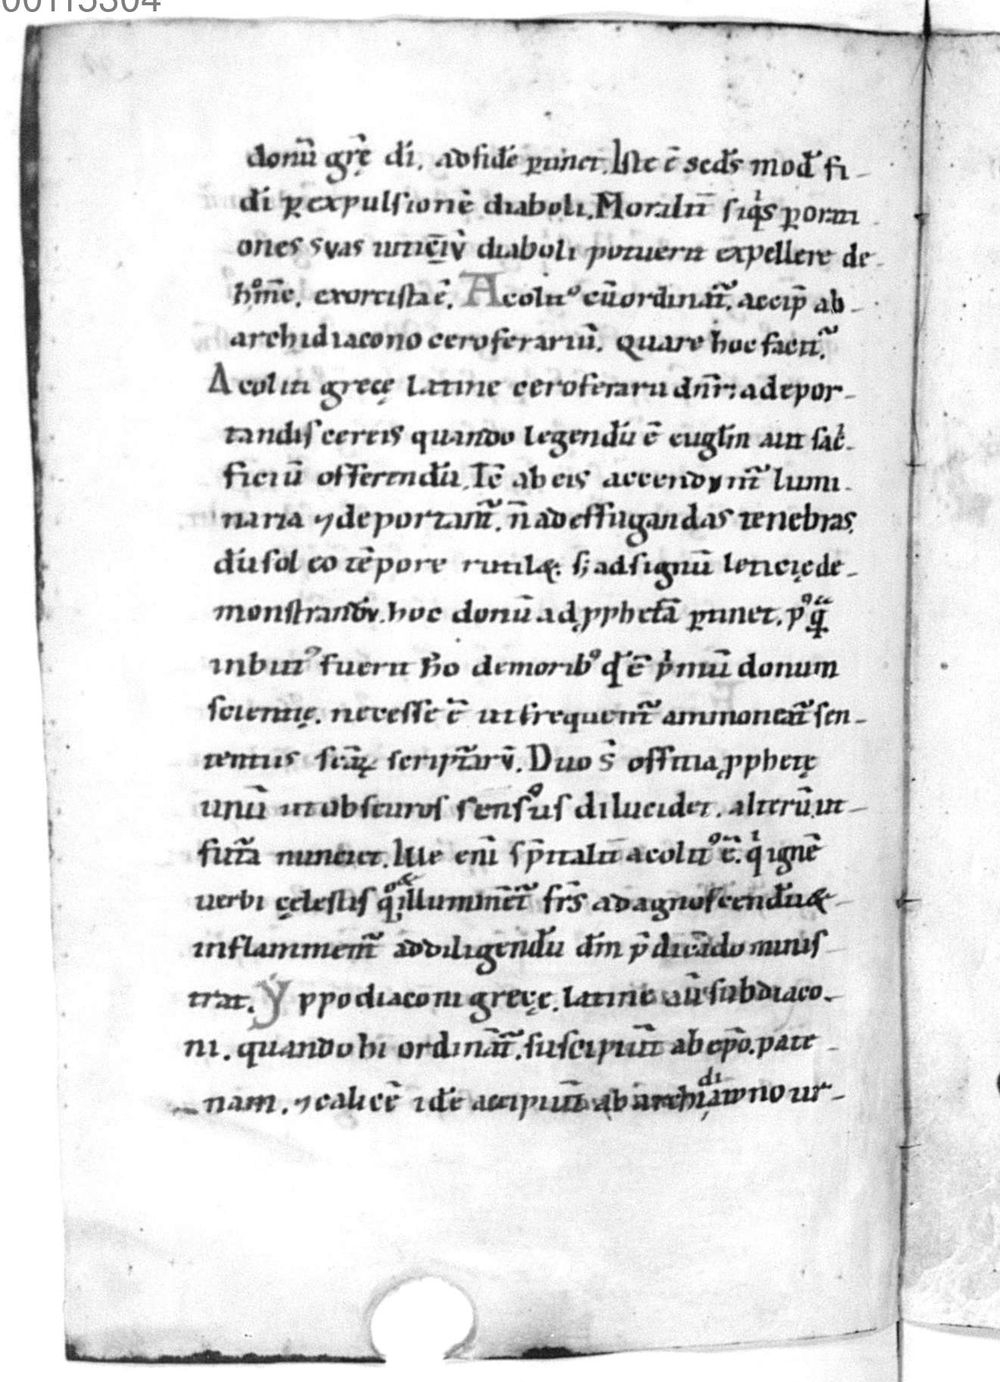 00115304
donū grę̄ dī. ad fidē ꝑtinet. Iste ē scd̄s mod᷒ fi-
dī ꝑ expulsionē diaboli. Moralit̄ siq̇s ꝑ orati-
ones suas diaboli potuerit expellere de-
hōīne. exorcista ē. Acolit᷒ cū ordinat᷑. accip̄ ab-
archidiacono ceroferariū. Quare hoc facit᷑.
Acoliti grecę latine ceroferarii dn̄r: a depor-
tandis cereis quando legendū ē euglīm aut sac̄-
ficiū offerendū. Tc̄ ab eis accendunt᷑ lumi-
naria ⁊ deportant᷑. n̄ ad effugandas tenebras.
dū sol eo tēpore rutil&. s; ad signū leticię de-
monstrandū. hoc donū ad ꝓphetā ꝑtinet. pꝰ q̄ꝫ
inbuti fuerit h̊o de morib᷒ qd̄ ē ṗmū donum
scientię. necesse ē ut frequent᷑ ammoneat᷑ sen-
tentiis scārꝝ scripturarū. Duo s̄ officia ꝓphetę
unū ut obscuros sensus dilucidet. alterū ut-
futura nunciet. Ille enī sp̄italit̄ acolit᷒ ē. q̇ ignē
uerbi cęlestis q̊ & illuminēt᷑ fr̄s ad agnoscendū &-
inflamment᷑ ad diligendū dm̄ p̄dicādo minis-
trat. Yppodiaconi grecę. latine aūt subdiaco-
ni. quando hi ordinānt᷑. suscipiunt ab ep̄o. pate-
nam. ⁊ calicē idē accipiunt ab archidiacono ur-